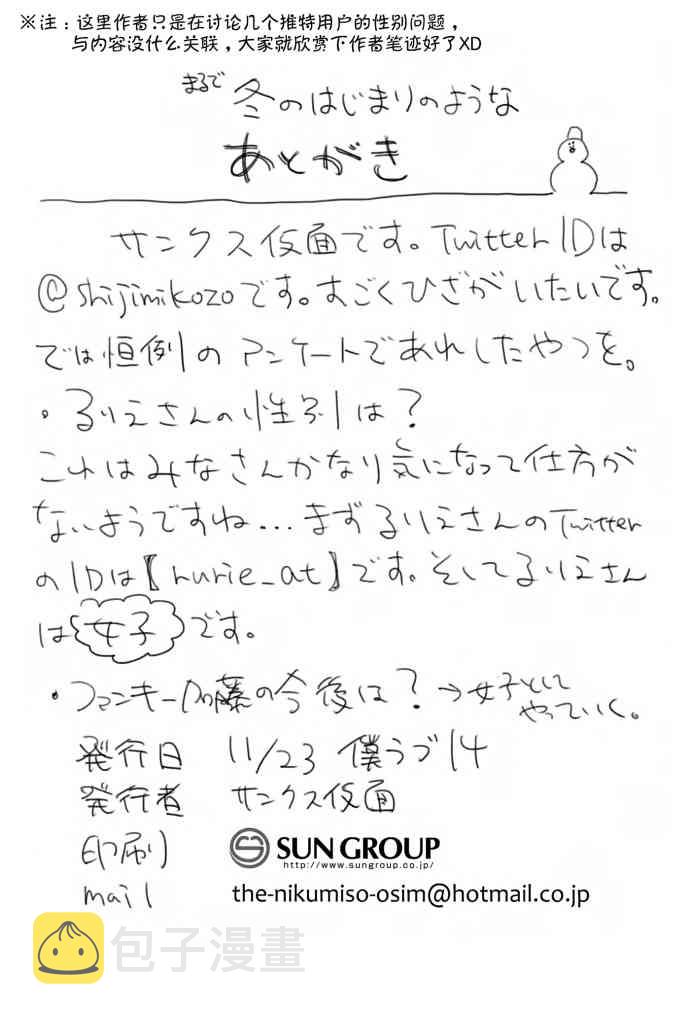 ※注：这里作者只是在讨论几个推特用户的性别问题，
与内容没什么关联，大家就欣赏下作者笔迹好了XD
まるで 冬のはじまりのような
あとがき
サンクス仮面です。Twitter IDは
@shijimikozoです。すごくひざがいたいです。
では恒例のアンケートであれしたやつを。
・るりえさんの性別は？
これはみなさんかなり気になって仕方が
ないようですね…まずるりえさんのTwitter
のIDは【rurie_at】です。そしてるりえさん
は女子です。
・ファンキー加藤の今後は？→女子として
やっていく。
発行日 11/23 僕ラブ14
発行者 サンクス仮面
印刷 SUN GROUP
http://www.sungroup.co.jp/
mail the-nikumiso-osim@hotmail.co.jp
包子漫畫